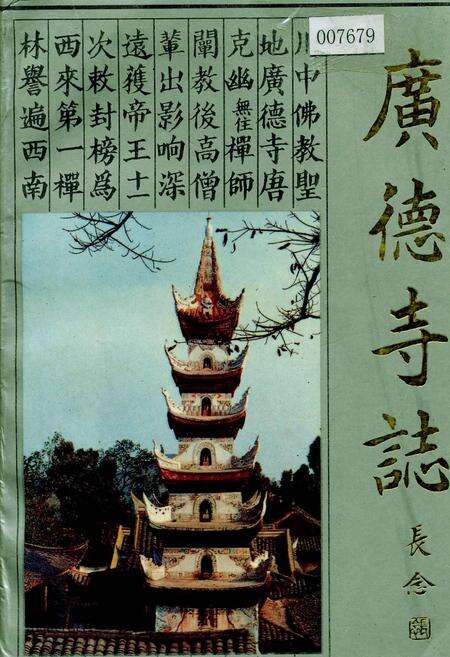 007679
廣德寺誌
長念
川中佛教聖
地廣德寺唐
克幽無住禪師
闡教後高僧
輩出影响深
遠獲帝王十一
次敕封榜爲
西來第一禪
林譽遍西南